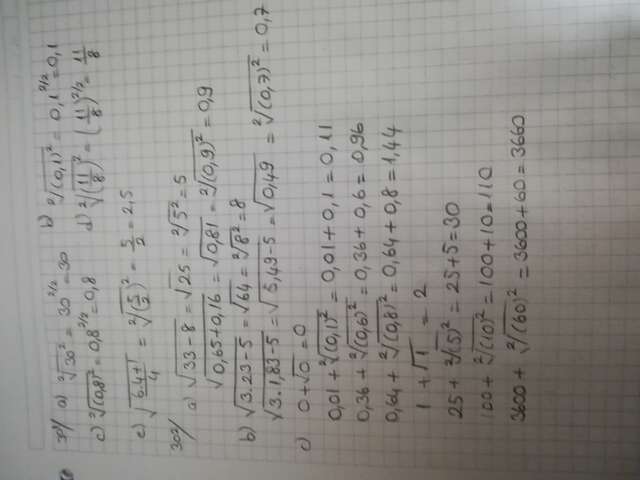 30/ a) ²√30² = 30^2/2 = 30 b) ²√(0,1)² = 0,1^2/2 = 0,1
c) ²√(0,8)² = 0,8^2/2 = 0,8 d) ²√(11/8)² = (11/8)^2/2 = 11/8
e) √(6.4+1/4) = ²√(5/2)² = 5/2 = 2,5
302/ a) √33-8 = √25 = ²√5² = 5
√0,65+0,16 = √0,81 = ²√(0,9)² = 0,9
b) √3.23-5 = √64 = ²√8² = 8
√3.1,83-5 = √5,49-5 = √0,49 = ²√(0,7)² = 0,7
c) 0+√0 = 0
0,01 + ²√(0,1)² = 0,01 + 0,1 = 0,11
0,36 + ²√(0,6)² = 0,36 + 0,6 = 0,96
0,64 + ²√(0,8)² = 0,64 + 0,8 = 1,44
1 + √1 = 2
25 + ²√(5)² = 25+5 = 30
100 + ²√(10)² = 100+10 = 110
3600 + ²√(60)² = 3600+60 = 3660